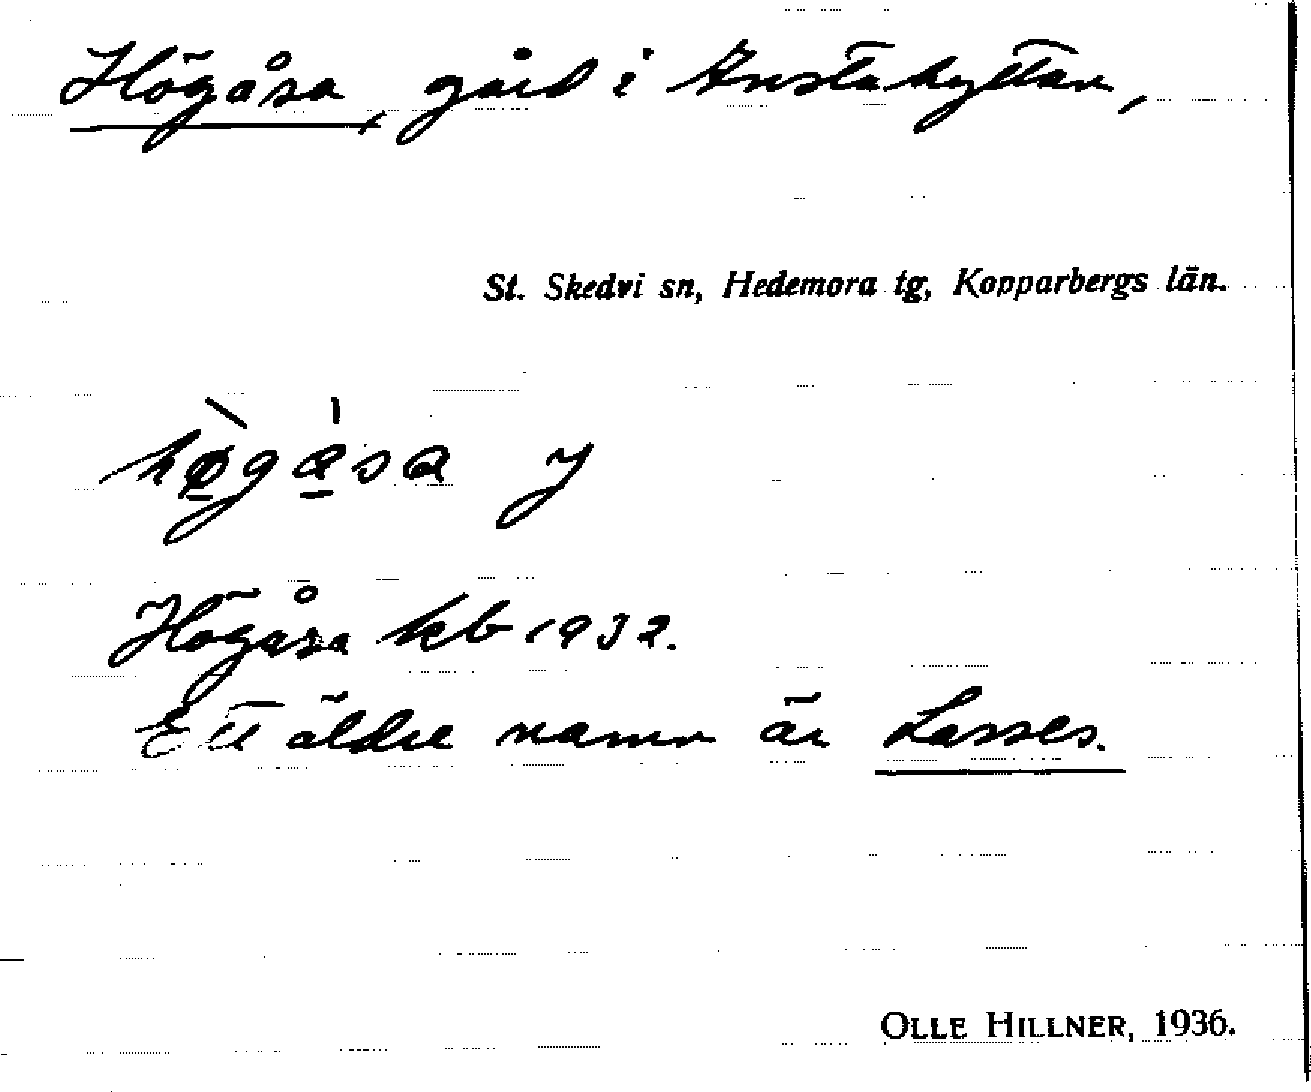 Högåsa, gård i Knutshyttan,
St. Skedvi sn, Hedemora tg, Kopparbergs län.
hø̱̀ga̱̍sa y
Högåsa kb 1932.
Ett äldre namn är Lasses.
OLLE HILLNER, 1936.